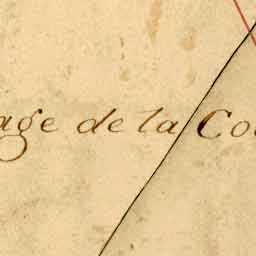 age de la Co